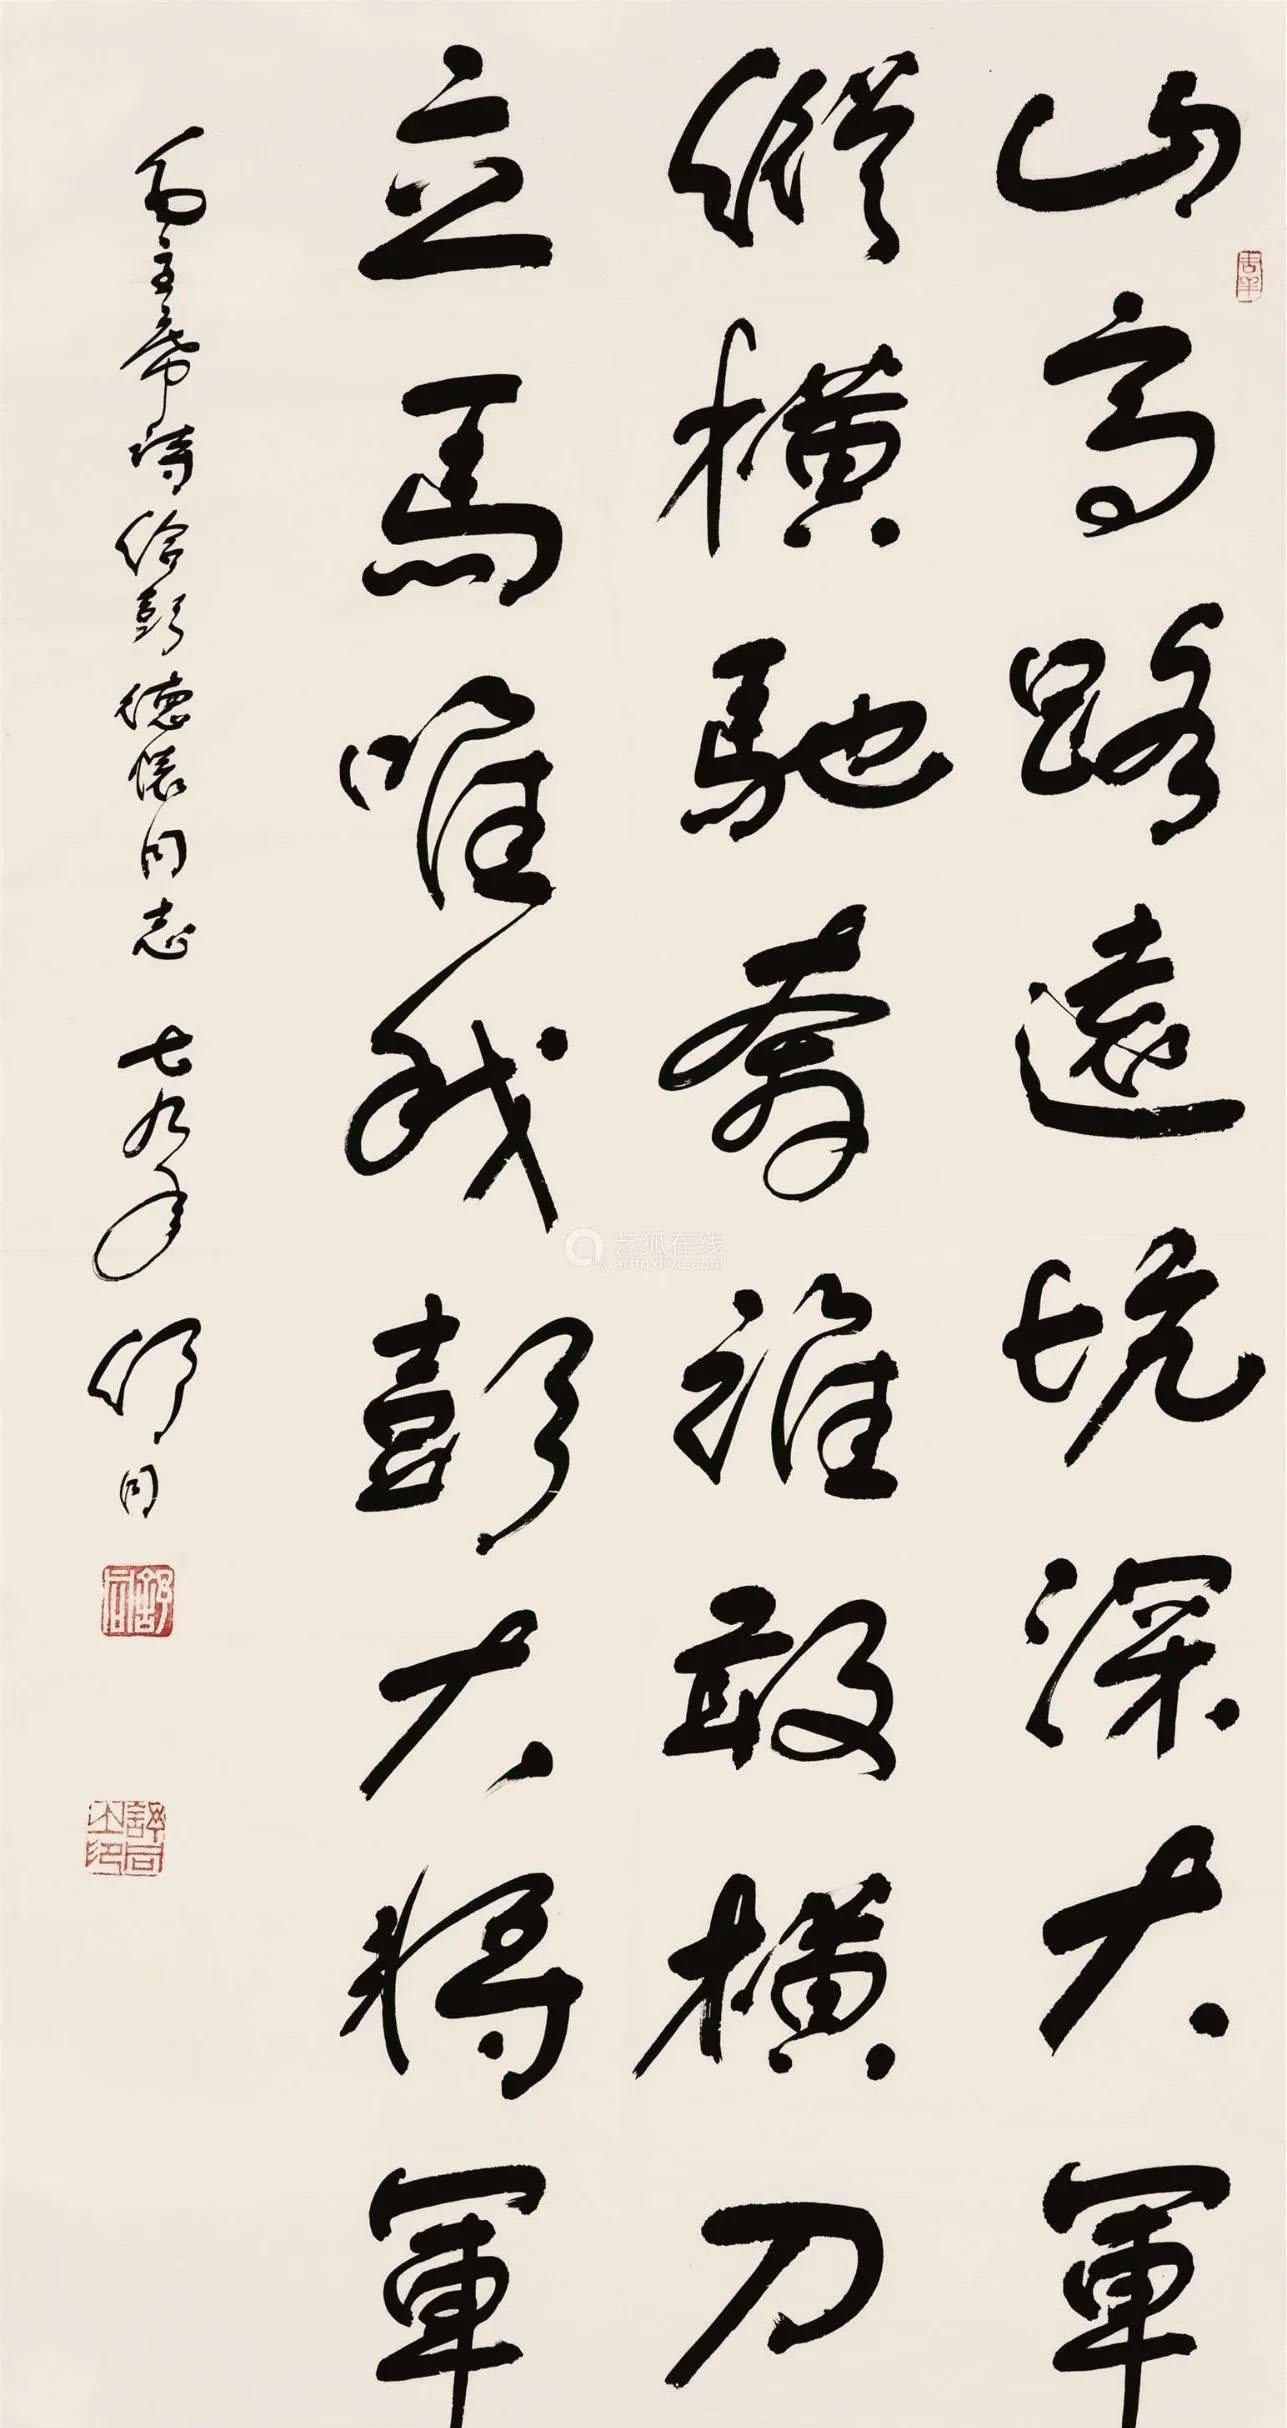 山高路遠坑深大軍
縱橫馳奔誰敢橫刀
立馬唯我彭大将軍
毛主席詩給彭德懷同志 七九年 舒同
舒同
舒同之印
艺狐在线
artfoxlive.com